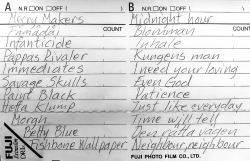 A N.R □ON □OFF ( ) B N.R □ON □OFF ( )
Merry Makers Midnight hour
COUNT COUNT
Pamadai Blomman
Infanticide Inhale
Pappas Rivaler Kungens man
Immediates I need your loving
Savage Skulls Even God
Paint Black Patience
Häfla Klump Just like everyday
Morgh Time will tell
Petty Blue Den rätta vägen
Fishbone Wallpaper Neighbour, neighbour
FUJI PHOTO FILM CO., LTD.
FUJI